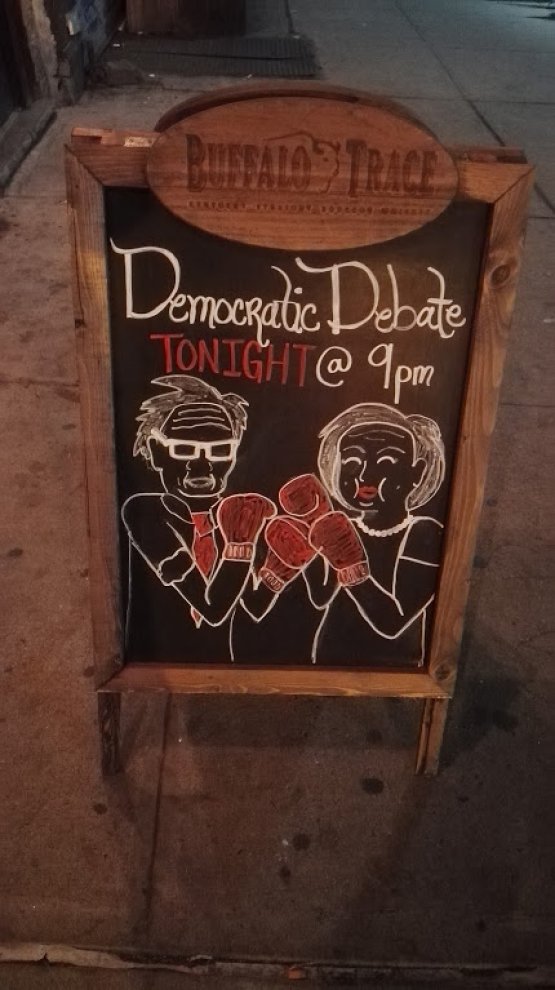 BUFFALO TRACE
KENTUCKY STRAIGHT BOURBON WHISKEY
Democratic Debate
TONIGHT @ 9pm